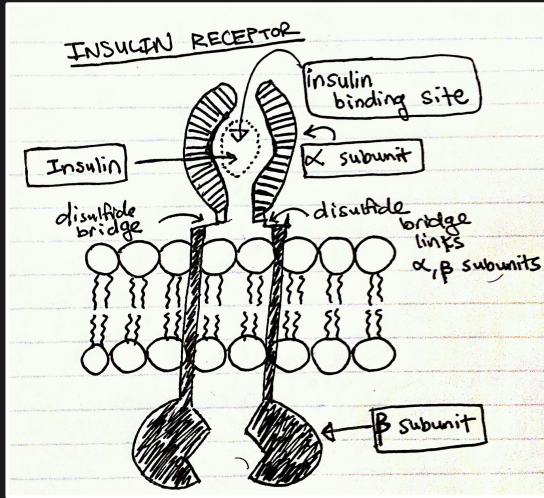 INSULIN RECEPTOR
insulin
binding site
Insulin
α subunit
disulfide
bridge
disulfide
bridge
links
α, β subunits
β subunit